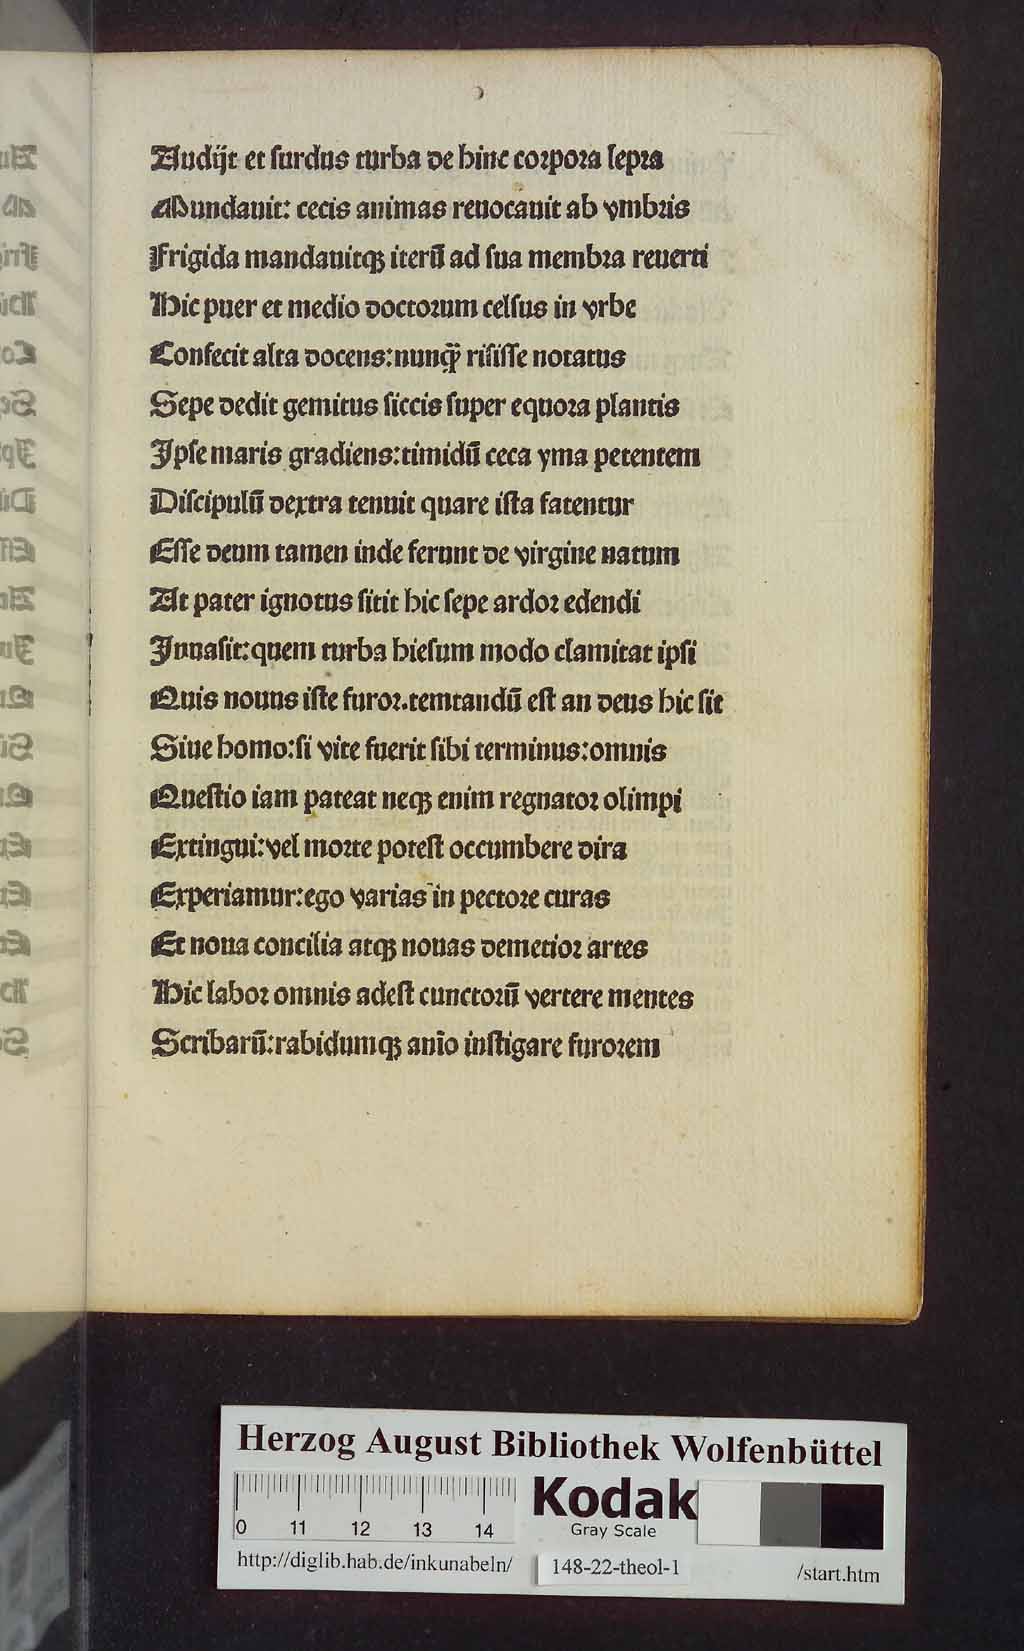 Audijt et ſurdus turba de hinc corpora lepra
Mundauit: cecis animas reuocauit ab vmbris
Frigida mandauitqꝫ iterū ad ſua membra reuerti
Hic puer et medio doctorum celſus in vrbe
Confecit alta docens: nunq̈ꝫ riſiſſe notatus
Sepe dedit gemitus ſiccis ſuper equora plantis
Ipſe maris gradiens: timidū ceca yma petentem
Diſcipulū dextra tenuit quare iſta fatentur
Eſſe deum tamen inde ferunt de virgine natum
At pater ignotus ſitit hic ſepe ardor edendi
Inuaſit: quem turba hieſum modo clamitat ipſi
Quis nouus iſte furor. temtandū eſt an deus hic ſit
Siue homo: ſi vite fuerit ſibi terminus: omnis
Queſtio iam pateat neqꝫ enim regnator olimpi
Extingui: vel morte poteſt occumbere dira
Experiamur: ego varias in pectore curas
Et noua concilia atqꝫ nouas demetior artes
Hic labor omnis adeſt cunctorū vertere mentes
Scribarū: rabidumqꝫ anīo inſtigare furorem
Herzog August Bibliothek Wolfenbüttel
Kodak
Gray Scale
0 11 12 13 14
http://diglib.hab.de/inkunabeln/ 148-22-theol-1 /start.htm